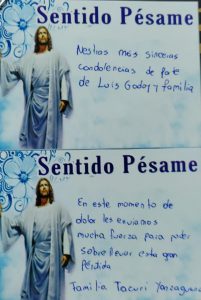 Sentido Pésame
Nestras más sinceras
condolencias de parte
de Luis Godoy y familia
Sentido Pésame
En este momento de
dolor les enviamos
mucha fuerza para poder
sobrellevar esta gran
pérdida
Familia Tacuri